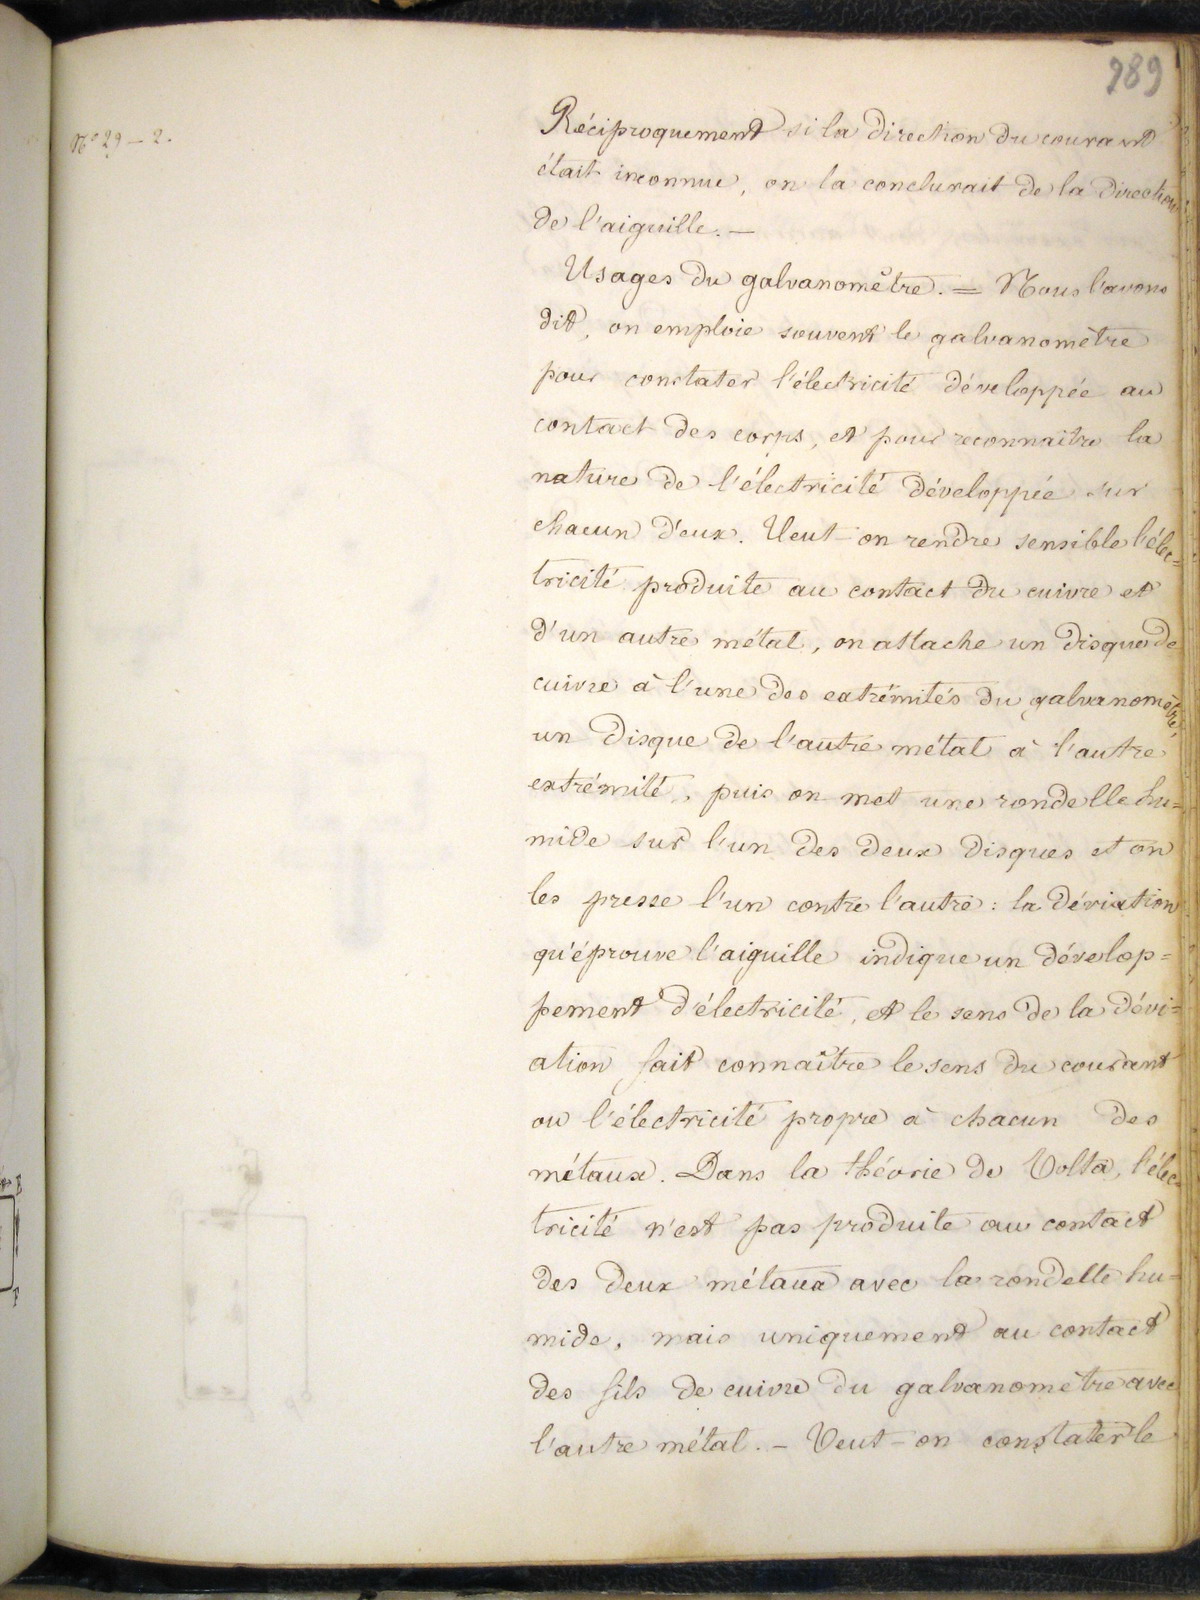 989
N° 29 - 2.
Réciproquement si la direction du courant
était inconnue, on la conclurait de la direction
de l'aiguille. —
Usages du galvanomètre. = Nous l'avons
dit, on emploie souvent le galvanomètre
pour constater l'électricité développée au
contact des corps, et pour reconnaître la
nature de l'électricité développée sur
chacun d'eux. Veut-on rendre sensible l'élec=
tricité produite au contact du cuivre et
d'un autre métal, on attache un disque de
cuivre à l'une des extrémités du galvanomètre,
un disque de l'autre métal à l'autre
extrémité, puis on met une rondelle hu=
mide sur l'un des deux disques et on
les presse l'un contre l'autre : la déviation
qu'éprouve l'aiguille indique un dévelop=
pement d'électricité, et le sens de la dévi=
ation fait connaître le sens du courant
ou l'électricité propre à chacun des
métaux. Dans la théorie de Volta, l'élec=
tricité n'est pas produite au contact
des deux métaux avec la rondelle hu=
mide, mais uniquement au contact
des fils de cuivre du galvanomètre avec
l'autre métal. - Veut-on constater le
E
F